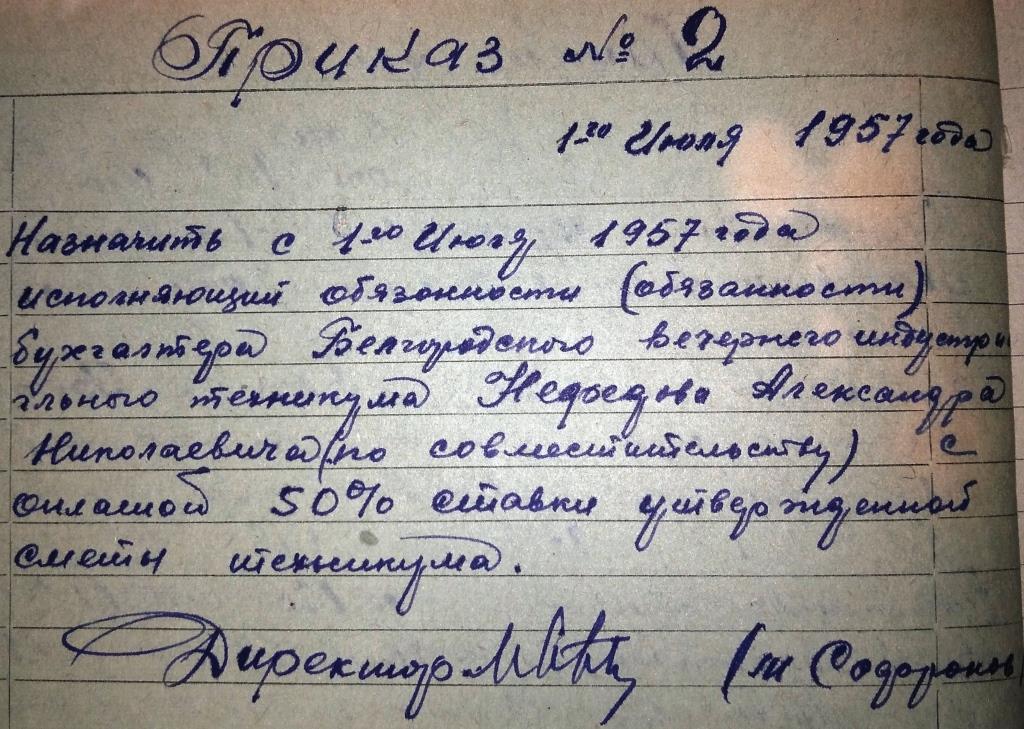 Приказ № 2
1го Июля 1957 года
Назначить с 1го Июля 1957 года
исполняющий обязонности (обязанности)
бухгалтера Белгородского вечернего индустри
ального техникума Александра
Николаевича (по совместительству) с
оплатой 50% ставки утвержденной
сметы техникума.
Директор